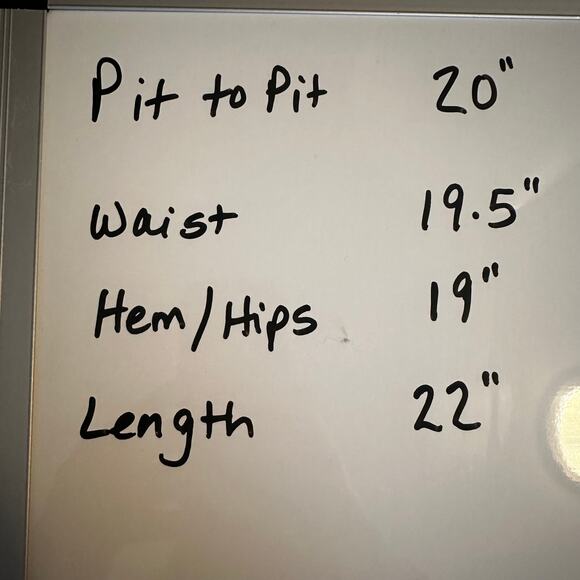 Pit to Pit 20"
Waist 19.5"
Hem/Hips 19"
Length 22"